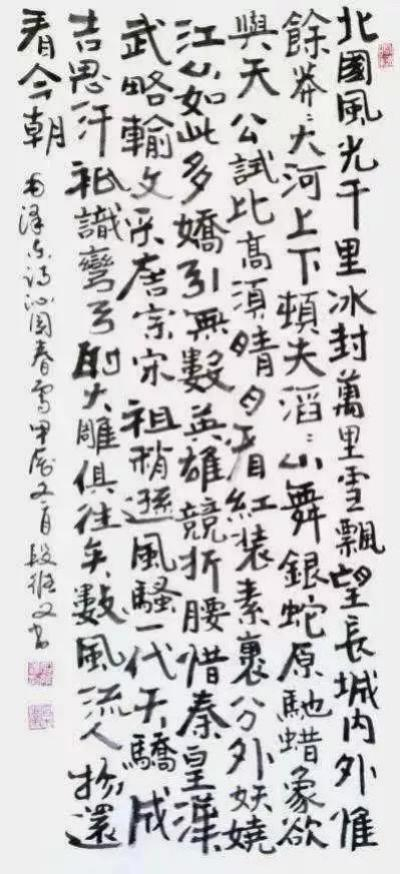 北國風光千里冰封萬里雪飄望長城內外惟
餘莽〻大河上下頓失滔〻山舞銀蛇原馳蜡象欲
與天公試比高須晴日看紅装素裹分外妖嬈
江山如此多嬌引無數英雄競折腰惜秦皇漢
武略輸文采唐宗宋祖稍遜風騷一代天驕成
吉思汗祇識彎弓射大雕俱往矣數風流人物還
看今朝
毛澤東詩沁園春雪甲辰月段書